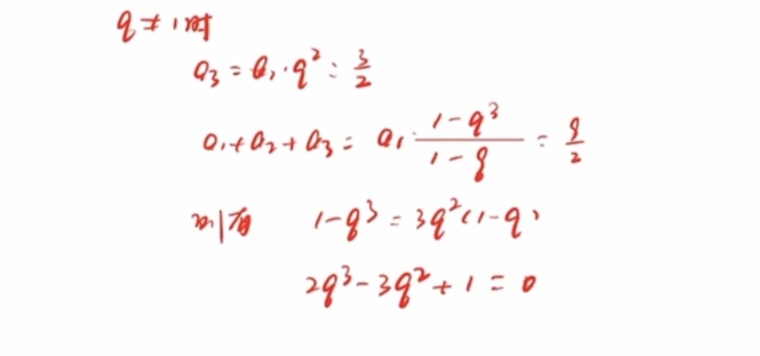 q ≠ 1 时
a₃ = a₁·q² = 3/2
a₁+a₂+a₃ = a₁·(1-q³)/(1-q) = 9/2
则有 1-q³ = 3q²(1-q)
2q³-3q²+1=0